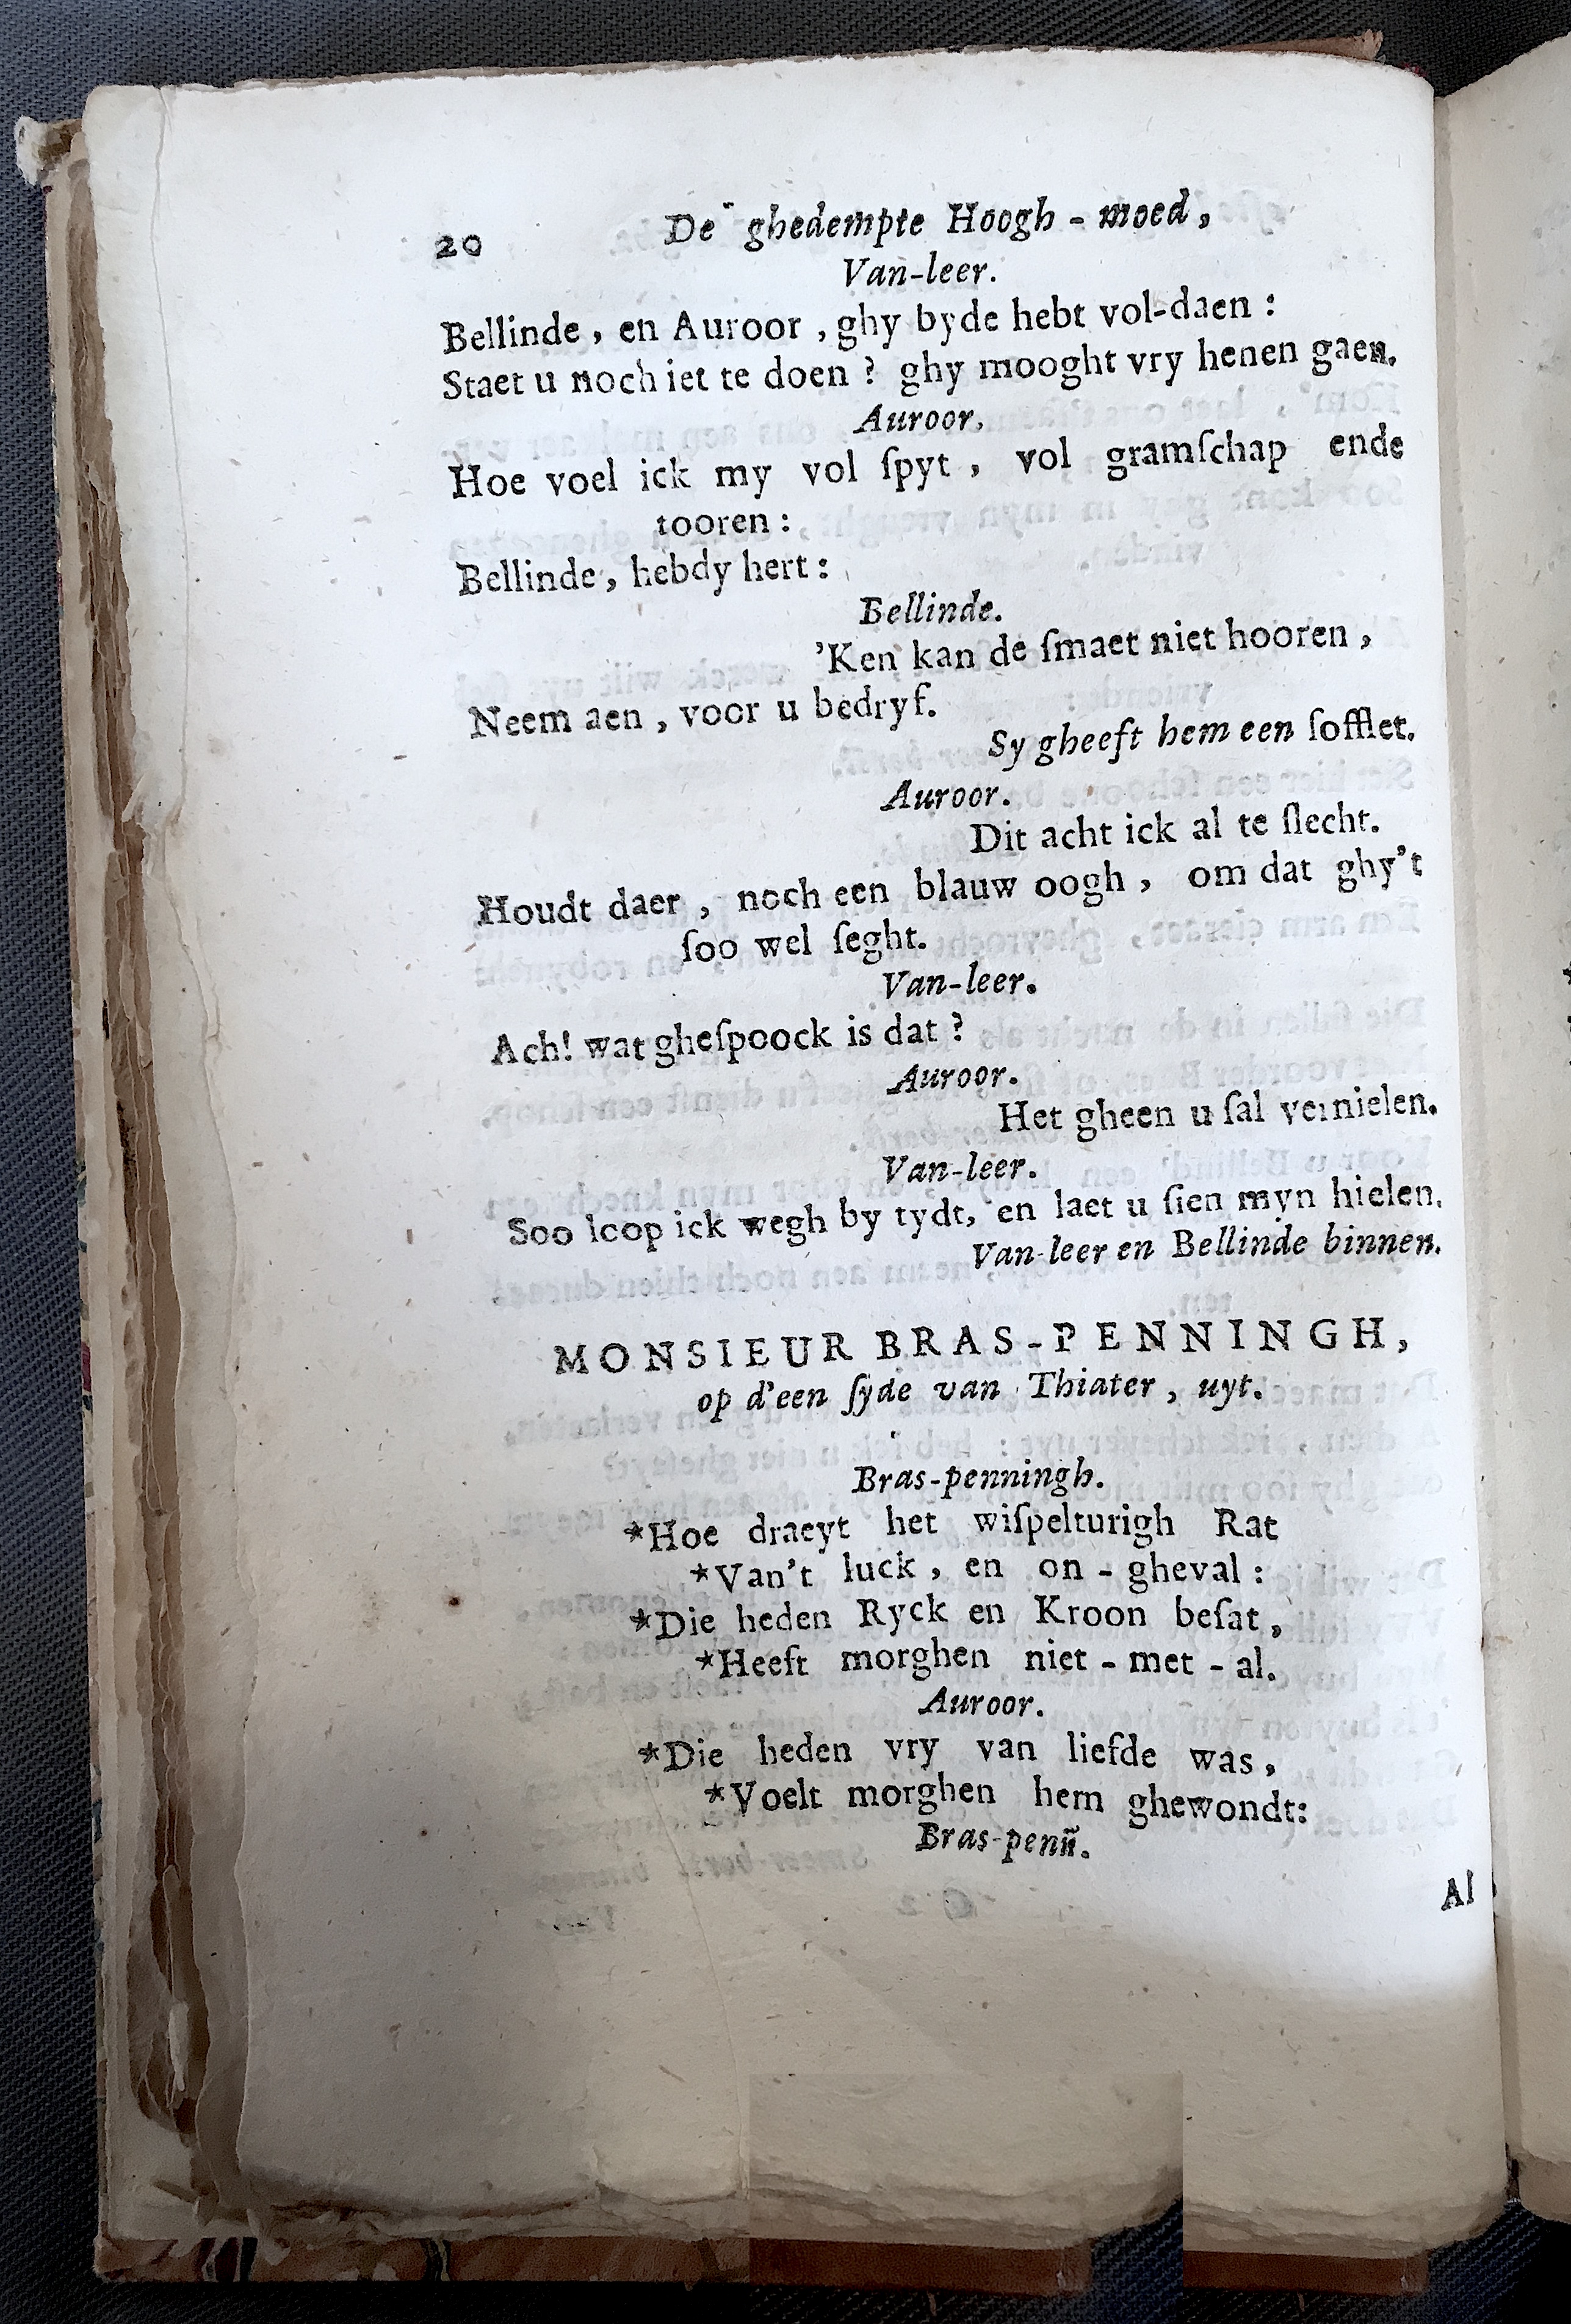 20 De ghedempte Hoogh-moed,
Van-leer.
Bellinde, en Auroor, ghy byde hebt vol-daen:
Staet u noch iet te doen? ghy mooght vry henen gaen.
Auroor.
Hoe voel ick my vol ſpyt, vol gramſchap ende
tooren:
Bellinde, hebdy hert:
Bellinde.
'Ken kan de ſmaet niet hooren,
Neem aen, voor u bedryf.
Sy gheeft hem een ſofflet.
Auroor.
Dit acht ick al te ſlecht.
Houdt daer, noch een blauw oogh, om dat ghy't
ſoo wel ſeght.
Van-leer.
Ach! wat gheſpoock is dat?
Auroor.
Het gheen u ſal vernielen.
Van-leer.
Soo loop ick wegh by tydt, en laet u ſien myn hielen.
Van-leer en Bellinde binnen.
MONSIEUR BRAS-PENNINGH,
op d'een ſyde van Thiater, uyt.
Bras-penningh.
*Hoe draeyt het wiſpelturigh Rat
*Van't luck, en on-gheval:
*Die heden Ryck en Kroon beſat,
*Heeft morghen niet-met-al.
Auroor.
*Die heden vry van liefde was,
*Voelt morghen hem ghewondt:
Bras-penn̄.
Al